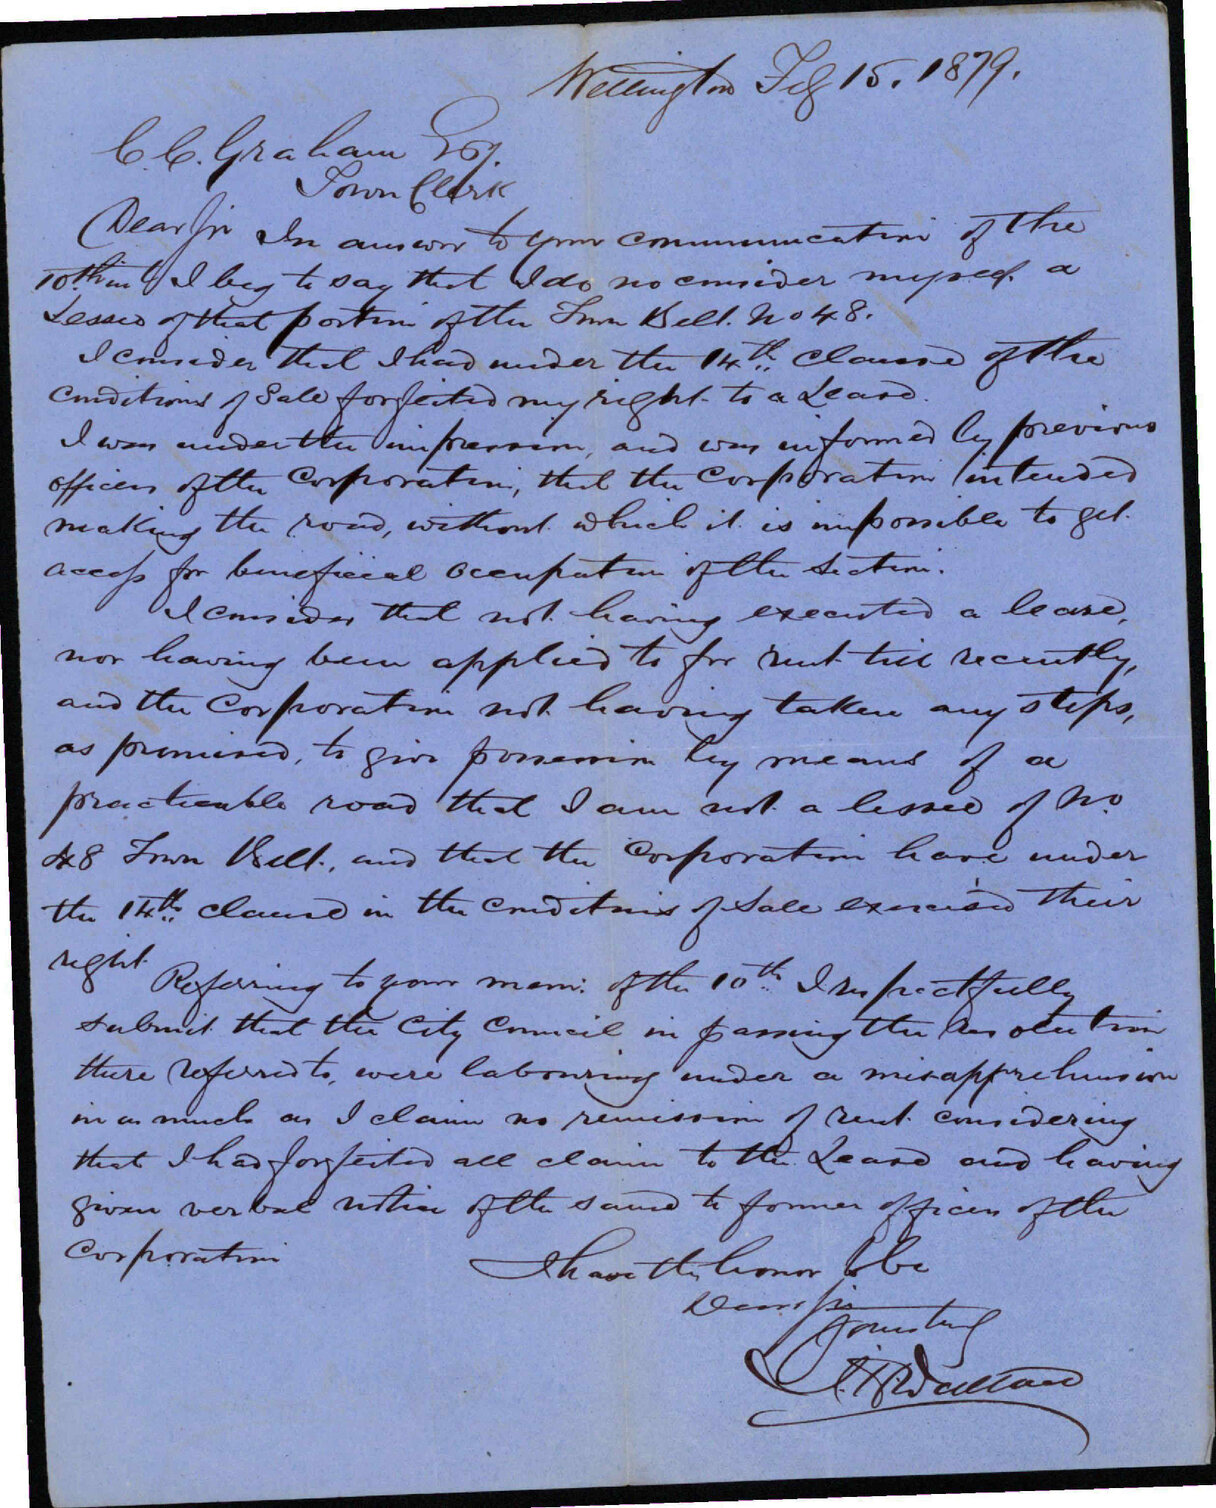 Wellington Feb 15. 1879.
C. C. Graham Esq.
Town Clerk
Dear Sir In answer to your communication of the
10th inst I beg to say that I do no consider myself a
Lessee of that portion of the Town Belt. No 48.
I consider that I had under the 14th clause of the
conditions of Sale forfeited my right to a Lease.
I was under the impression, and was informed by previous
officers of the Corporation, that the Corporation intended
making the road, without which it is impossible to get
access for beneficial occupation of the Section.
I consider that not having executed a lease,
nor having been applied to for rent till recently,
and the Corporation not having taken any steps,
as promised, to give possession by means of a
practicable road that I am not a lessee of No
48 Town Belt, and that the Corporation have under
the 14th clause in the Conditions of Sale exercised their
right
Referring to your mem: of the 10th I respectfully
submit that the City Council in passing the resolution
there referred to, were labouring under a misapprehension
in as much as I claim no remission of rent considering
that I had forfeited all claim to the Lease and having
given verbal notice of the same to former officers of the
Corporation
I have the honor to be
Dear Sir
Yours truly
Wallace